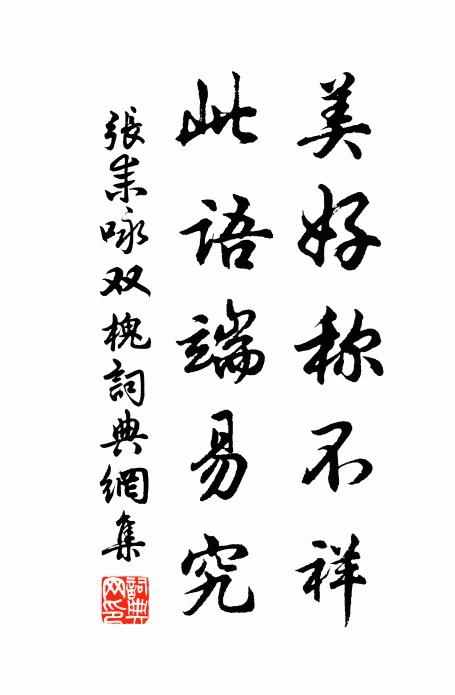 美好称不祥
此语端易究
張耒咏双槐詞典網集
詞典网印